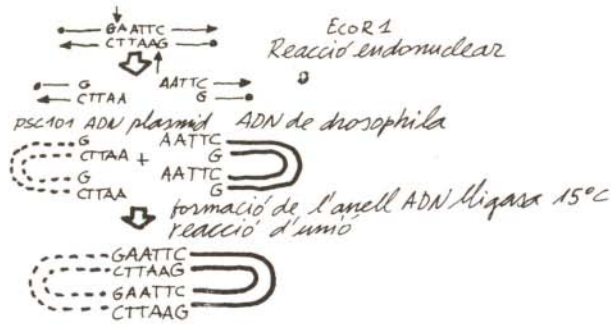 GAATTC EcoR1
CTTAAG Reacció endonuclear
G AATTC
CTTAA G
PSC101 ADN plasmid ADN de drosophila
G AATTC
CTTAA + G
G AATTC
CTTAA G
formació de l'anell ADN lligasa 15°C
reacció d'unió
GAATTC
CTTAAG
GAATTC
CTTAAG